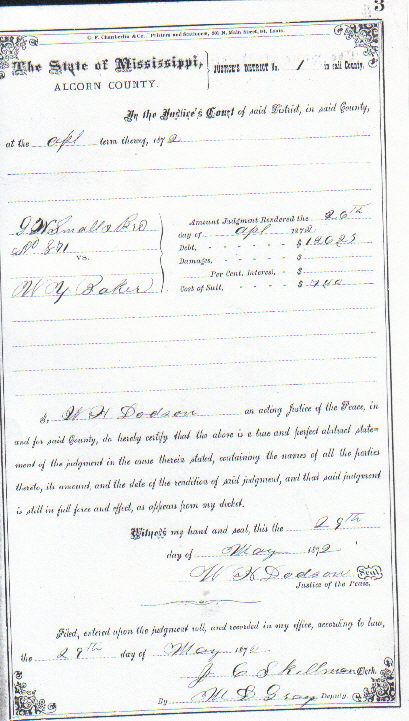 3
C. F. Chamberlin & Co., Printers and Stationers, 508 N. Main Street, St. Louis.
The State of Mississippi, JUSTICE'S DISTRICT No. 1 in said County.
ALCORN COUNTY.
In the Justice's Court of said District, in said County,
at the Apl term thereof, 1872
G W Small & Bro
No 871
vs.
M Y Baker
Amount Judgment Rendered the 26th
day of Apl 1872
Debt, $
Damages, $
Per Cent. Interest, $
Cost of Suit, $
I, W H Dodson an acting Justice of the Peace, in
and for said County, do hereby certify that the above is a true and perfect abstract state-
ment of the judgment in the cause therein stated, containing the names of all the parties
thereto, its amount, and the date of the rendition of said judgment, and that said judgment
is still in full force and effect, as appears from my docket.
Witness my hand and seal, this the 29th
day of May 1872
W H Dodson Seal
Justice of the Peace.
Filed, entered upon the judgment roll, and recorded in my office, according to law,
the 29th day of May 1872
J C Skillman Clerk.
By M L Gray Deputy.